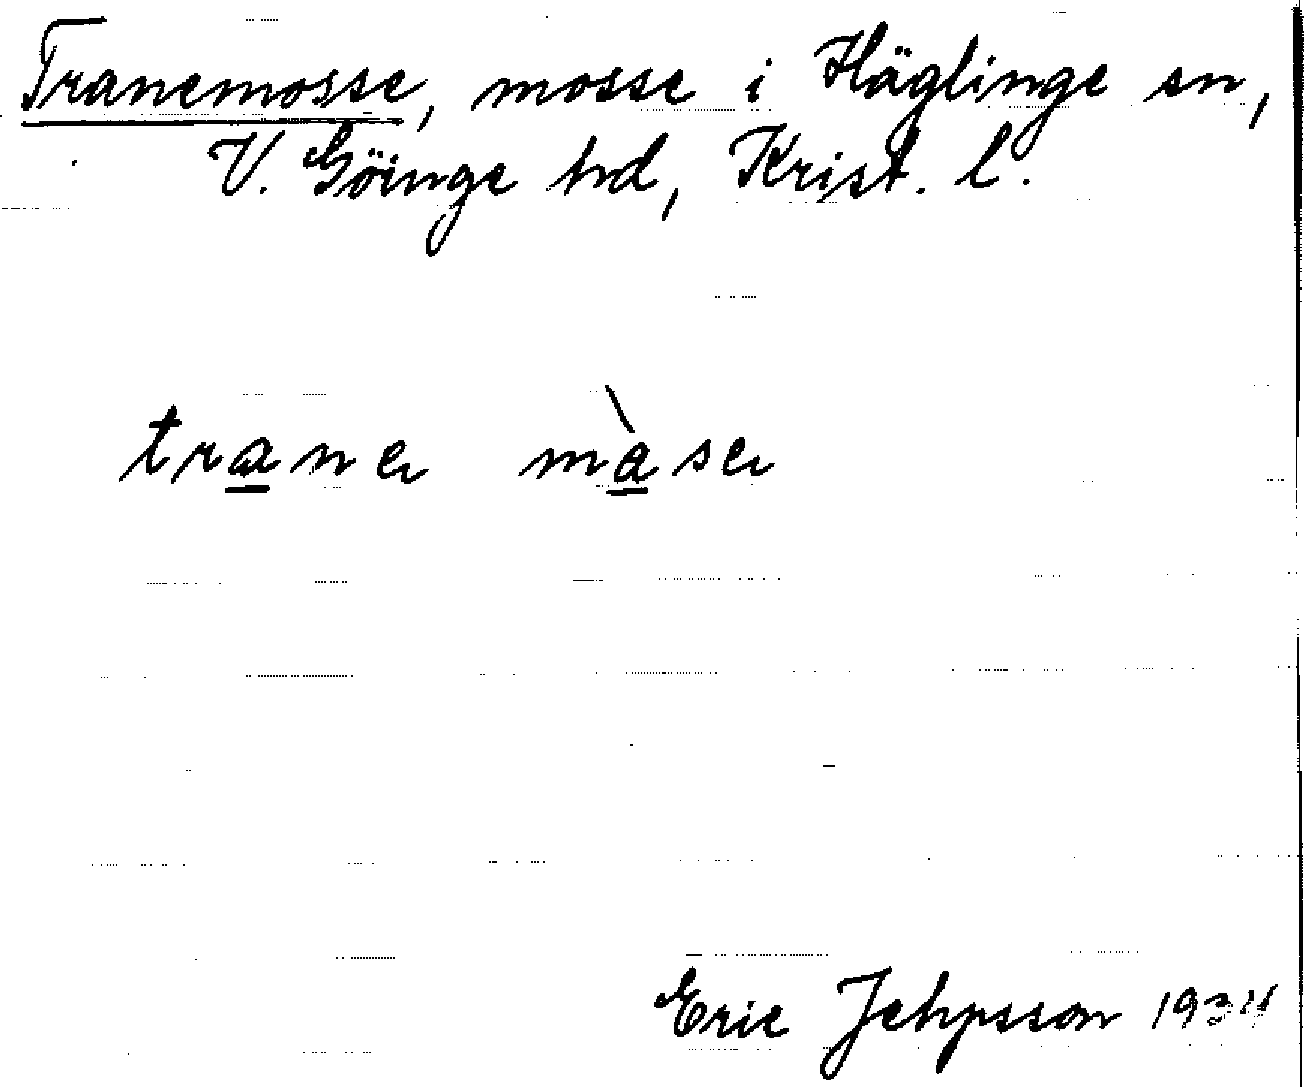 Tranemosse, mosse i Häglinge sn,
V. Göinge hd, Krist. l.
trane màse
Eric Jehpsson 1934